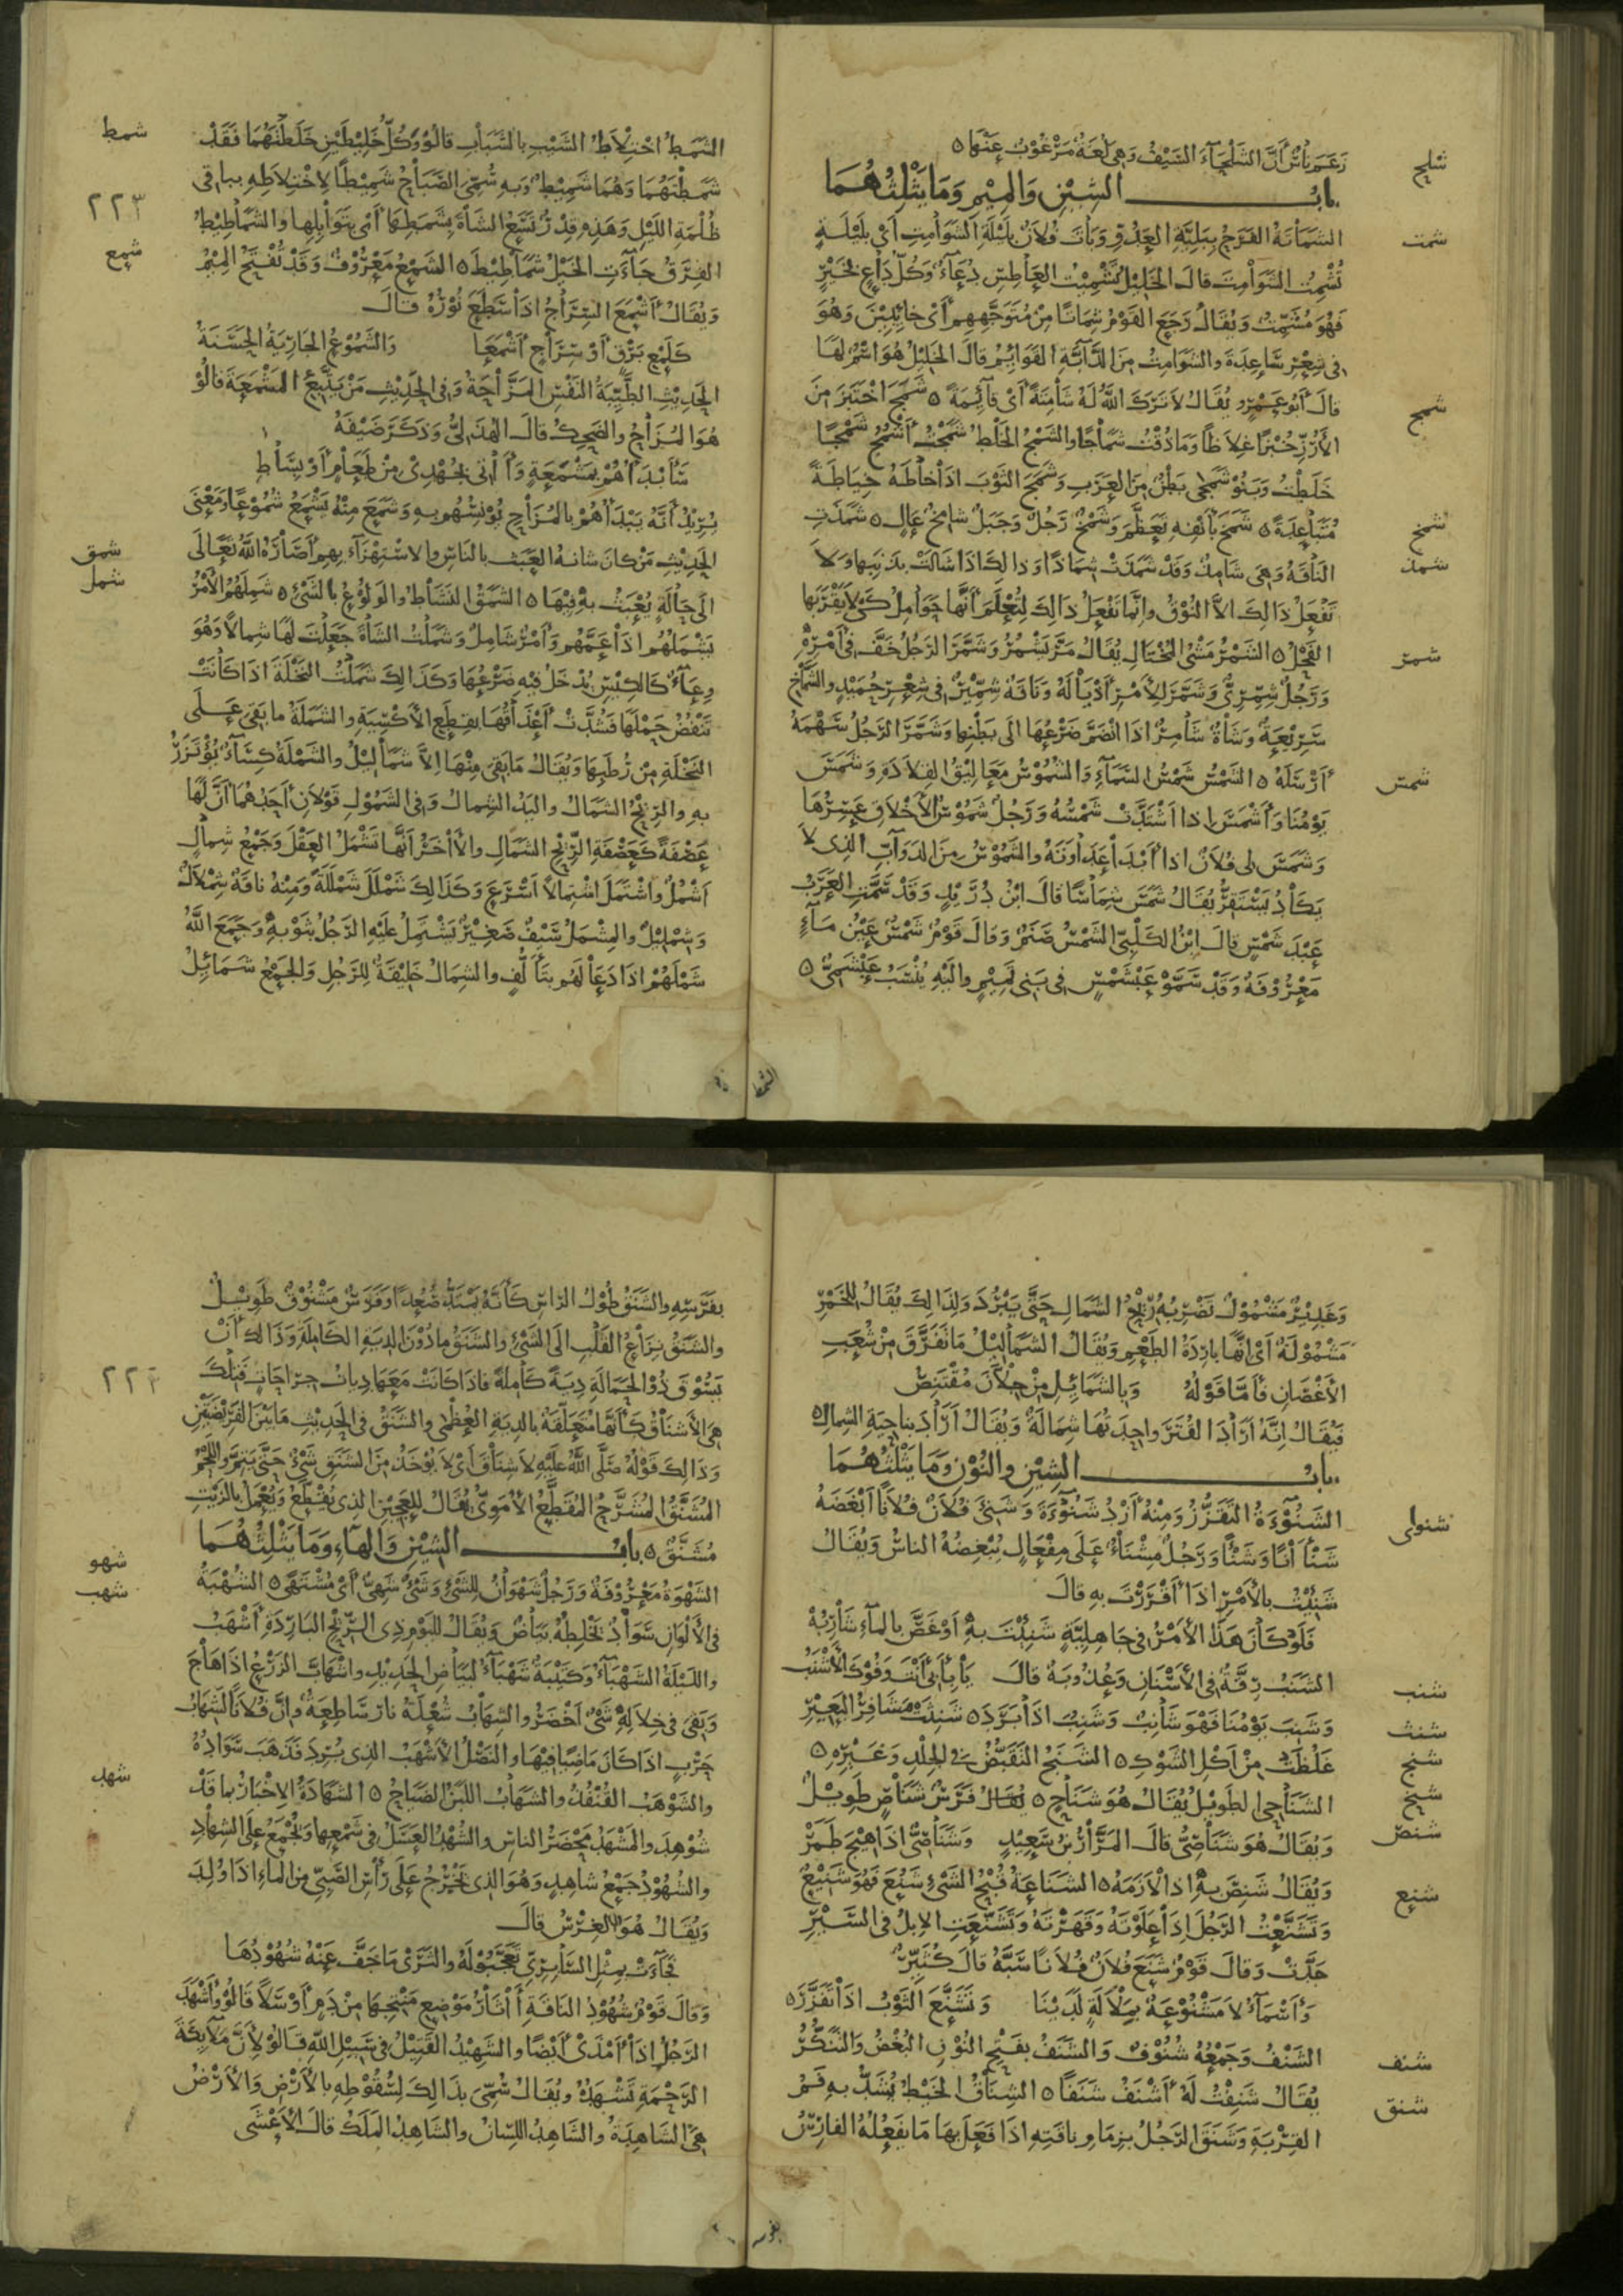 زعم ناس أن الشلحاء السيف وهي لغة مرغوب عنها ٥
شلح
باب الشين والميم وما يثلثهما
شمت
الشماتة الفرح ببلية العدو وبات فلان بليلة الشوامت أي بليلة
تشمت الشوامت قال الخليل تشميت العاطس دعاء وكل داع بخير
فهو مشمت ويقال رجع القوم شماتا من متوجههم أي خائبين وهو
في شعر ساعدة والشوامت من الدابة القوائم قال الخليل هو اسم لها
قال أبو عمرو يقال لا ترك الله له شامتة أي قائمة ٥ شمج اختبز من
شمج
الأرز خبزا غلاظا وما ذقت شماجا والشمج الخلط شمجت أشمج شمجا
خلطت وبنو شمجى بطن من العرب وشمج الثوب اذا خاطه خياطة
متباعدة ٥ شمخ بأنفه تعظم وشمخ رجل وجبل شامخ عال ٥ شمذت
شمخ
شمذ
الناقة وهي شامذ وقد شمذت شماذا وذالك اذا شالت بذنبها ولا
تفعل ذالك الا النوق وانما تفعل ذالك لتعلم أنها حوامل كي لا يقربها
الفحل ٥ الشمر مشي المختال يقال مر يشمر وشمر الرجل خف في أمره
شمر
ورجل شمري وشمر لأمر أذياله وناقة شمير في شعر حميد والشماخ
سريعة وشاة شامر اذا انضم ضرعها الى بطنها وشمر الرجل سهمه
أرسله ٥ الشمس شمس السماء والشموس معاليق القلادة وشمس
شمس
يومنا وأشمس اذا اشتدت شمسه ورجل شموس الأخلاق عسرها
وشمس لي فلان اذا أبدأ عداوته والشموس من الدواب الذي لا
يكاد يستقر يقال شمس شماسا قال ابن دريد وقد سمت العرب
عبد شمس قال ابن الكلبي الشمس صنم وقال قوم شمس عين ماء
معروفة وقد سمو عبشمس في بني تميم واليه ينسب عبشمي ٥
الشمط
الشمط اختلاط الشيب بالشباب قالوا وكل خليطين خلطتهما فقد
شمط
شمطتهما وهما شميط وبه سمي الصباح شميطا لاختلاطه بباقي
٢٢٣
ظلمة الليل وهذه قدر تسع الشاة بشمطها أي بتوابلها والشماطيط
الفرق جاءت الخيل شماطيط ٥ الشمع معروف وقد تفتح الميم
شمع
ويقال أشمع السراج اذا سطع نوره قال
كلمع برق أو سراج أشمعا والشموع الجارية الحسنة
الحديث الطيبة النفس المزاحة وفي الحديث من يتبع المشمعة قالوا
هو المزاح والضحك قال الهذلي وذكر ضيفه
سأبدأهم بمشمعة وأاتي بجهدي من طعام أو بساط
يريد أنه يبدأهم بالمزاح يونسهم به وشمع منه يشمع شموعا ومعنى
الحديث من كان شانه العبث بالناس والاستهزاء بهم أصاره الله تعالى
شمق
الى حالة يعبث به فيها ٥ الشمق النشاط والولوع بالشيء ٥ شملهم الأمر
شمل
يشملهم اذا عمهم وأمر شامل وشملت الشاة جعلت لها شمالا وهو
وعاء كالكيس يدخل فيه ضرعها وكذالك شملت النخلة اذا كانت
تنفض حملها فشدت أعذاقها بقطع الأكسية والشملة ما بقي على
النخلة من رطبها ويقال ما بقي منها الا شماليل والشملة كساء يؤتزر
به والريح الشمال واليد الشمال وفي الشمول قولان أحدهما أن لها
عصفة كعصفة الريح الشمال والأاخر أنها تشمل العقل وجمع شمال
أشمل واشتمل اشتمالا أسرع وكذالك شملل شمللة ومنه ناقة شملال
وشمليل والمشمل سيف صغير يشتمل عليه الرجل بثوبه وجمع الله
شملهم اذا دعا لهم بتألف والشمال خليقة للرجل والجمع شمائل
وغدير مشمول تضربه ريح الشمال حتى يبرد ولذالك يقال للخمر
مشمولة أي انها باردة الطعم ويقال الشماليل ما تفرق من شعب
الأغصان فأما قوله وبالشمائل من جلان مقتنص
فيقال انه أراد القتر واحدتها شمالة ويقال أراد بناحية الشمال ٥
باب الشين والنون وما يثلثهما
الشنوءة التقزز ومنه أزد شنوءة وشنئ فلان فلانا أبغضه
شنواي
شنأانا وشنئا ورجل مشناء على مفعال يبغضه الناس ويقال
شنئت بالأمر اذا أقررت به قال
فلو كان هذا الأمر في جاهلية شنئت به أو غص بالماء شاربه
الشنب رقة في الأسنان وعذوبة قال يا بأبي أنت وفوك الأشنب
شنب
وشنب يومنا فهو شانب وشنب اذا برد ٥ شنثت مشافر البعير
شنث
غلظت من أكل الشوك ٥ الشنج التقبض في الجلد وغيره ٥
شنج
الشناحي الطويل يقال هو شناح ٥ يقال فرس شناص طويل
شنح
ويقال هو شناصي قال المرار بن سعيد وشناصي اذا هيج طمر
شنص
ويقال شنص به اذا لازمه ٥ الشناعة قبح الشيء شنع فهو شنيع
شنع
وتشنعت الرجل اذا علوته وقهرته وتشنعت الابل في السير
جدت وقال قوم شنع فلان فلانا سبه قال كثير
وأسماء لا مشنوعة بملالة لدينا وتشنع الثوب اذا تفزر ٥
الشنف وجمعه شنوف والشنف بفتح النون البغض والتنكر
شنف
يقال شنفت له أشنف شنفا ٥ الشناق الخيط يشد به فم
شنق
القربة وشنق الرجل بزمام ناقته اذا فعل بها ما يفعله الفارس
بفرسه
بفرسه والشنق طول الراس كأنه يمتد صعدا وفرس مشنوق طويل
والشنق نزاع القلب الى الشيء والشنق ما دون الدية الكاملة وذالك أن
يسوق ذو الحمالة دية كاملة فاذا كانت معها ديات جراحات فتلك
٢٢٤
هي الأشناق كأنها متعلقة بالدية العظمى والشنق في الحديث ما بين الفريضتين
وذالك قوله صلى الله عليه لا شناق أي لا يؤخذ من الشنق شيء حتى يتم واللحم
المشنق المشرح المقطع الأموي يقال للعجين الذي يقطع ويعمل بالزيت
مشنق ٥ باب الشين والهاء وما يثلثهما
الشهوة معروفة ورجل شهوان للشيء وشيء شهي أي مشتهى ٥ الشهبة
شهو
شهب
في الألوان سواد يخلطه بياض ويقال لليوم ذي الريح الباردة أشهب
والليلة الشهباء وكتيبة شهباء لبياض الحديد واشهاب الزرع اذا هاج
وبقي في خلاله شيء أخضر والشهاب شعلة نار ساطعة وان فلانا لشهاب
حرب اذا كان ماضيا فيها والنصل الأشهب الذي برد فذهب سواده
والشوهب القنفذ والشهاب اللبن الضياح ٥ الشهادة الاخبار بما قد
شهد
شوهد والمشهد محضر الناس والشهد العسل في شمعها وتجمع على الشهاد
والشهود جمع شاهد وهو الذي يخرج على رأس الصبي من الماء اذا ولد
ويقال هو الغرس قال
فجاءت بمثل السابري تعجبوا له والثرى ما جف عنه شهودها
وقال قوم شهود الناقة أاثار موضع منتجها من دم أو سلا قالوا وأشهد
الرجل اذا أمذى أيضا والشهيد القتيل في سبيل الله قالوا لأن ملائكة
الرحمة تشهده ويقال سمي بذالك لسقوطه بالأرض والأرض
هي الشاهدة والشاهد اللسان والشاهد الملك قال الأعشى